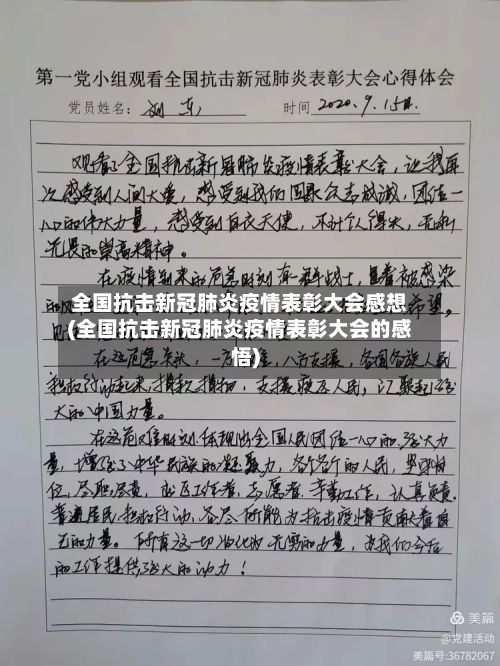 第一党小组观看全国抗击新冠肺炎表彰大会心得体会
党员姓名： 时间 2020.9.15日.
观看了全国抗击新冠肺炎疫情表彰大会，让我再
次感受到人间大爱，感受到我们国家众志成城，团结一
心的伟大力量，感受到白衣天使，不计个人得失，无私
无畏的崇高精神。
在疫情到来的危急时刻 有一群战士，冒着被感染
全国抗击新冠肺炎疫情表彰大会感想
(全国抗击新冠肺炎疫情表彰大会的感
悟)
希望。
在这危急关头，一方 八方支援，各国各族人民
积极行动起来 捐款捐物，支援疫区人民，汇聚起强
大的中国力量。
在这危难时刻 体现出全国人民团结一心的强大力
量，增强了中华民族的凝聚力，各行各行的人民，坚守岗
位，尽职尽责， 工作者，志愿者 辛勤工作，认真负责.
普通居民 积极行动，各尽所能为抗击疫情贡献着自
己的力量。 所有这一切 化为无穷的力量，为我们今后
的工作提供强大的动力！
美篇
@党建活动
美篇号:36782067